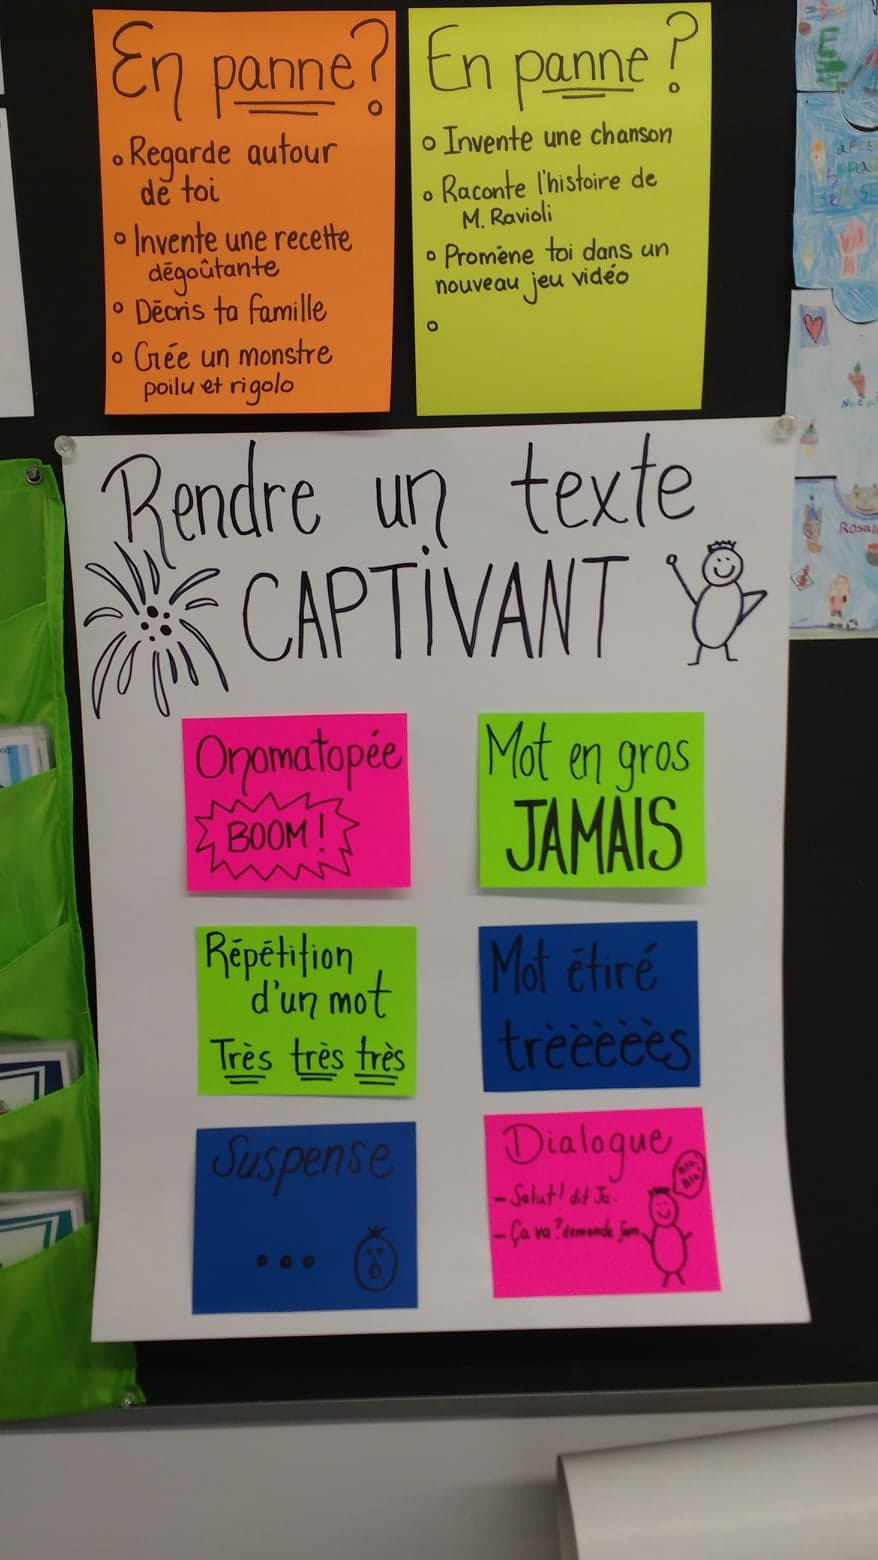 En panne?
Regarde autour
de toi
Invente une recette
dégoûtante
Décris ta famille
Crée un monstre
poilu et rigolo
En panne?
Invente une chanson
Raconte l'histoire de
M. Ravioli
Promène toi dans un
nouveau jeu vidéo
Rendre un texte
CAPTIVANT
Onomatopée
BOOM!
Mot en gros
JAMAIS
Répétition
d'un mot
Très très très
Mot étiré
trèèèèès
Suspense
...
Dialogue
Bla!
Bla!
- Salut! dit Jo.
- Ça va? demande Sam.